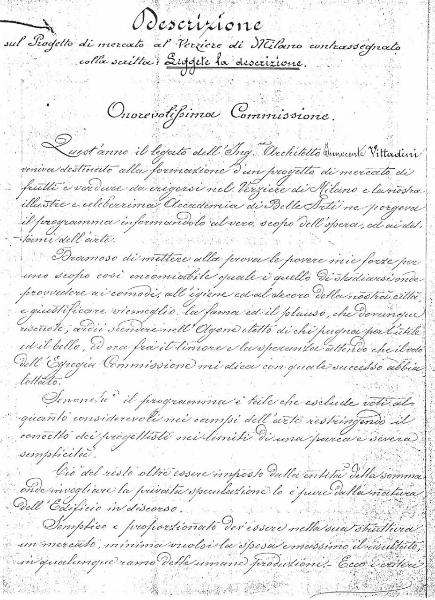 Descrizione
sul Progetto di mercato al Verziere di Milano contrassegnato
colla scritta: Leggete la descrizione.
Onorevolissima Commissione.
Quest'anno il legato dell'Ing.re Architetto Innocente Vittadini
veniva destinato alla formazione d'un progetto di mercato di
frutti e verdure da erigersi nel Verziere di Milano e la nostra
illustre e celeberrima Accademia di Belle Arti ne porgeva
il programma informandolo al vero scopo dell'opera, ed ai det-
tami dell'arte.
Bramoso di mettere alla prova le povere mie forze per
uno scopo così encomiabile quale è quello di studiarsi onde
provvedere ai comodi, all'igiene ed al decoro della nostra città
e giustificare vie meglio la fama ed il plauso, che dovunque
riscuote, ardii scendere nell'Agone eletto di chi pugna per l'utile
ed il bello, ed ora fra il timore e la speranza attendo che il voto
dell'Egregia Commissione mi dica con quale successo abbia
lottato.
il programma è tale che esclude voti al-
quanto considerevoli nei campi dell'arte restringendo il
concetto dei progettisti nei limiti di una parca e severa
semplicità.
Ciò del resto oltre essere imposto dalla entità della somma
onde invogliare la privata speculazione lo è pure dalla natura
dell'Edificio in discorso.
Semplice e proporzionato dev'essere nella sua struttura
un mercato, minima vuolsi la spesa e massimo il risultato,
in qualunque ramo delle umane produzioni. - Ecco i criteri